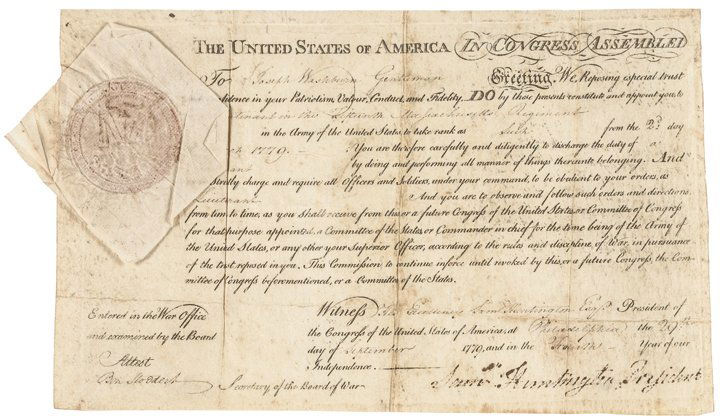 THE UNITED STATES OF AMERICA IN CONGRESS ASSEMBLE
To Joseph Washburn Gentleman Greeting. We Reposing especial trust
fidence in your Patriotism, Valour, Conduct, and Fidelity, DO by these presents constitute and appoint you to
Lieutenant in the Fifteenth Massachusetts Regiment
in the Army of the United States, to take rank as Such from the 2d day
1779. You are therefore carefully and diligently to discharge the duty of a
by doing and performing all manner of things thereunto belonging. And
strictly charge and require all Officers and Soldiers, under your command, to be obedient to your orders, as
Lieutenant And you are to observe and follow such orders and directions
from time to time, as you shall receive from this or a future Congress of the United States, or Committee of Congress
for that purpose appointed, a Committee of the States, or Commander in chief for the time being of the Army of
the United States, or any other your Superior Officer, according to the rules and discipline of War, in pursuance
of the trust reposed in you. This Commission to continue in force until revoked by this, or a future Congress, the Com-
mittee of Congress beforementioned, or a Committee of the States.
Entered in the War Office
and examined by the Board
Attest
Ben Stoddert
Secretary of the Board of War
Witness His Excellency Saml Huntington Esqr. President of
the Congress of the United States of America, at Philadelphia the 29th
day of September 1779, and in the Fourth Year of our
Independence.
Saml Huntington President